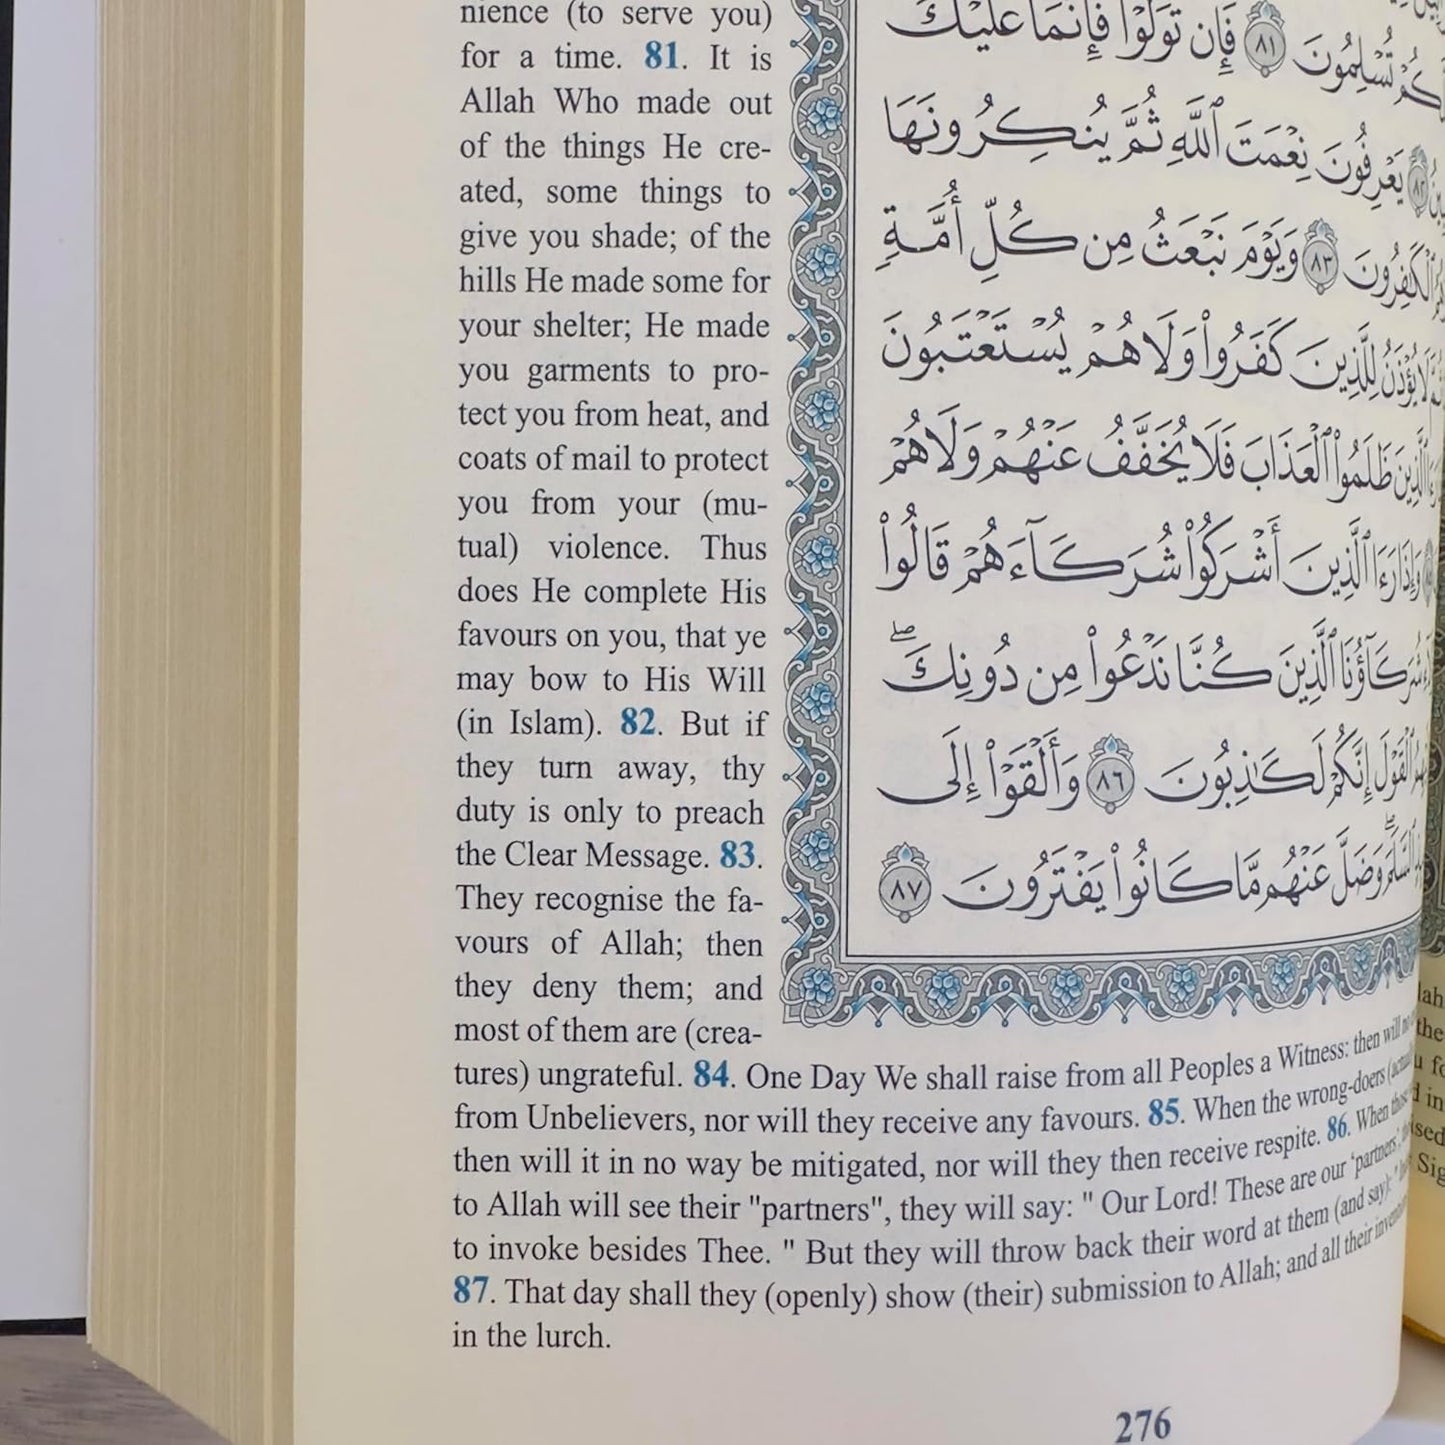 nience (to serve you)
for a time. 81. It is
Allah Who made out
of the things He cre-
ated, some things to
give you shade; of the
hills He made some for
your shelter; He made
you garments to pro-
tect you from heat, and
coats of mail to protect
you from your (mu-
tual) violence. Thus
does He complete His
favours on you, that ye
may bow to His Will
(in Islam). 82. But if
they turn away, thy
duty is only to preach
the Clear Message. 83.
They recognise the fa-
vours of Allah; then
they deny them; and
most of them are (crea-
tures) ungrateful. 84. One Day We shall raise from all Peoples a Witness: then will
from Unbelievers, nor will they receive any favours. 85. When the wrong-doers
then will it in no way be mitigated, nor will they then receive respite. 86. When
to Allah will see their "partners", they will say: " Our Lord! These are our 'partners',
to invoke besides Thee. " But they will throw back their word at them (and say):
87. That day shall they (openly) show (their) submission to Allah; and all their
in the lurch.
تُسْلِمُونَ ٨١ فَإِن تَوَلَّوْا۟ فَإِنَّمَا عَلَيْكَ
٨٢ يَعْرِفُونَ نِعْمَتَ ٱللَّهِ ثُمَّ يُنكِرُونَهَا
ٱلْكَٰفِرُونَ ٨٣ وَيَوْمَ نَبْعَثُ مِن كُلِّ أُمَّةٍ
لَا يُؤْذَنُ لِلَّذِينَ كَفَرُوا۟ وَلَا هُمْ يُسْتَعْتَبُونَ
ٱلَّذِينَ ظَلَمُوا۟ ٱلْعَذَابَ فَلَا يُخَفَّفُ عَنْهُمْ وَلَا هُمْ
وَإِذَا رَءَا ٱلَّذِينَ أَشْرَكُوا۟ شُرَكَآءَهُمْ قَالُوا۟
شُرَكَآؤُنَا ٱلَّذِينَ كُنَّا نَدْعُوا۟ مِن دُونِكَ ۖ
ٱلْقَوْلَ إِنَّكُمْ لَكَٰذِبُونَ ٨٦ وَأَلْقَوْا۟ إِلَى
ٱلسَّلَمَ ۖ وَضَلَّ عَنْهُم مَّا كَانُوا۟ يَفْتَرُونَ ٨٧
276